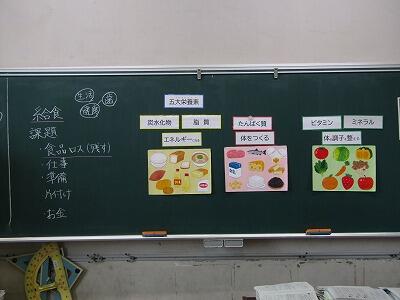 生活
菌
健康
給食
課題
・食品ロス(残す)
・仕事
・準備
・片付け
・お金
五大栄養素
炭水化物 脂質
エネルギーになる
たんぱく質
体をつくる
ビタミン ミネラル
体の調子を整える